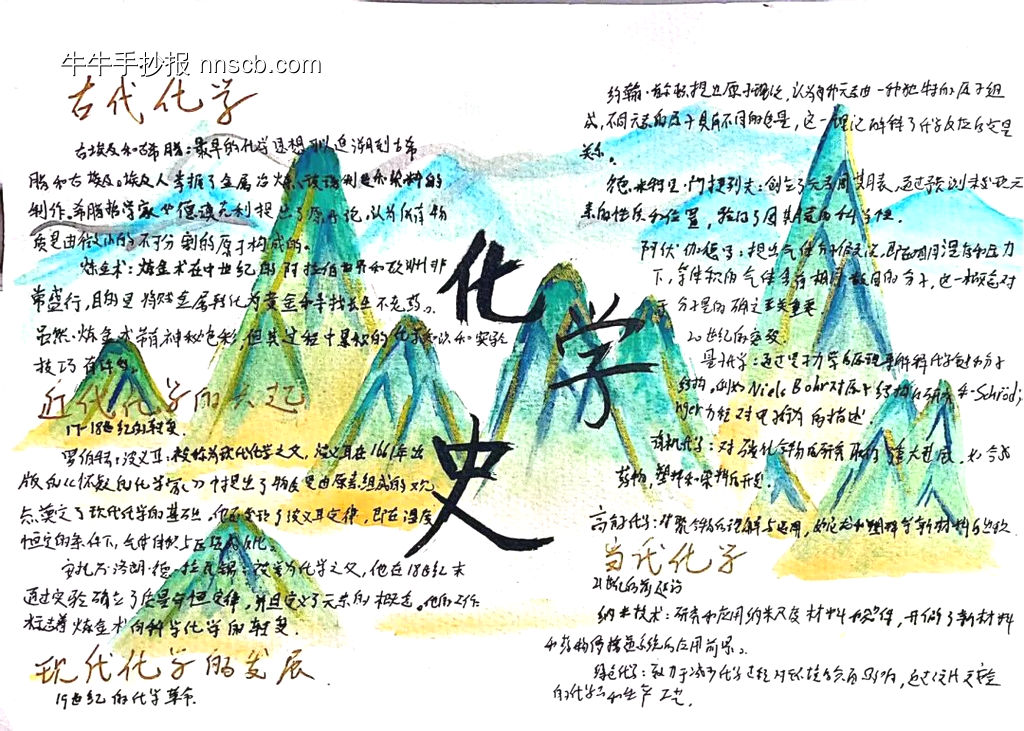 牛牛手抄报 nnscb.com
古代化学
古埃及和古希腊：最早的化学思想可以追溯到古希
腊和古埃及。埃及人掌握了金属冶炼、玻璃制造和染料的
制作。希腊哲学家如德谟克利提出了原子论，认为所有物
质是由微小的不可分割的原子构成的。
炼金术：炼金术在中世纪的阿拉伯世界和欧洲非
常盛行，目的是将贱金属转化为黄金和寻找长生不老药。
虽然炼金术带有神秘色彩，但其过程中累积的化学知识和实验
技巧
近代化学的兴起
17-18世纪的转变
罗伯特·波义耳：被称为现代化学之父，波义耳在1661年出
版的《怀疑的化学家》中提出了物质是由原素组成的观
点，奠定了现代化学的基础。他还发现了波义耳定律，即在温度
恒定的条件下，气体体积与压强成反比。
安托万·洛朗·德·拉瓦锡：被誉为化学之父，他在18世纪末
通过实验确立了质量守恒定律，并且定义了元素的概念。他的工作
标志着炼金术向科学化学的转变。
现代化学的发展
19世纪的化学革命
化学史
约翰·道尔顿提出原子理论，认为每种元素由一种独特的原子组
成，不同元素的原子具有不同的质量，这一理论解释了化学反应的定量
关系。
德米特里·门捷列夫：创立了元素周期表，通过预测未发现元
素的性质和位置，验证了周期表的科学性。
阿伏伽德罗：提出气体的假设，即在相同温度和压力
下，等体积的气体含有相同数目的分子，这一概念对
于分子量的确定至关重要。
20世纪的突变
量子化学：通过量子力学的原理来解释化学键和分子
结构，例如Niels Bohr对原子结构的研究和Schröd,
nger方程对电子的描述
有机化学：对碳化合物的研究取得了重大进展，如合成
药物，塑料和染料的开发。
高分子化学：对聚合物的理解与运用，如尼龙和塑料等新材料的出现
当代化学
21世纪的前沿
纳米技术：研究和应用纳米尺度材料和器件，开创了新材料
和药物传输系统的应用前景。
绿色化学：致力于减少化学过程对环境的负面影响，通过设计更安全
的化学品和生产工艺。